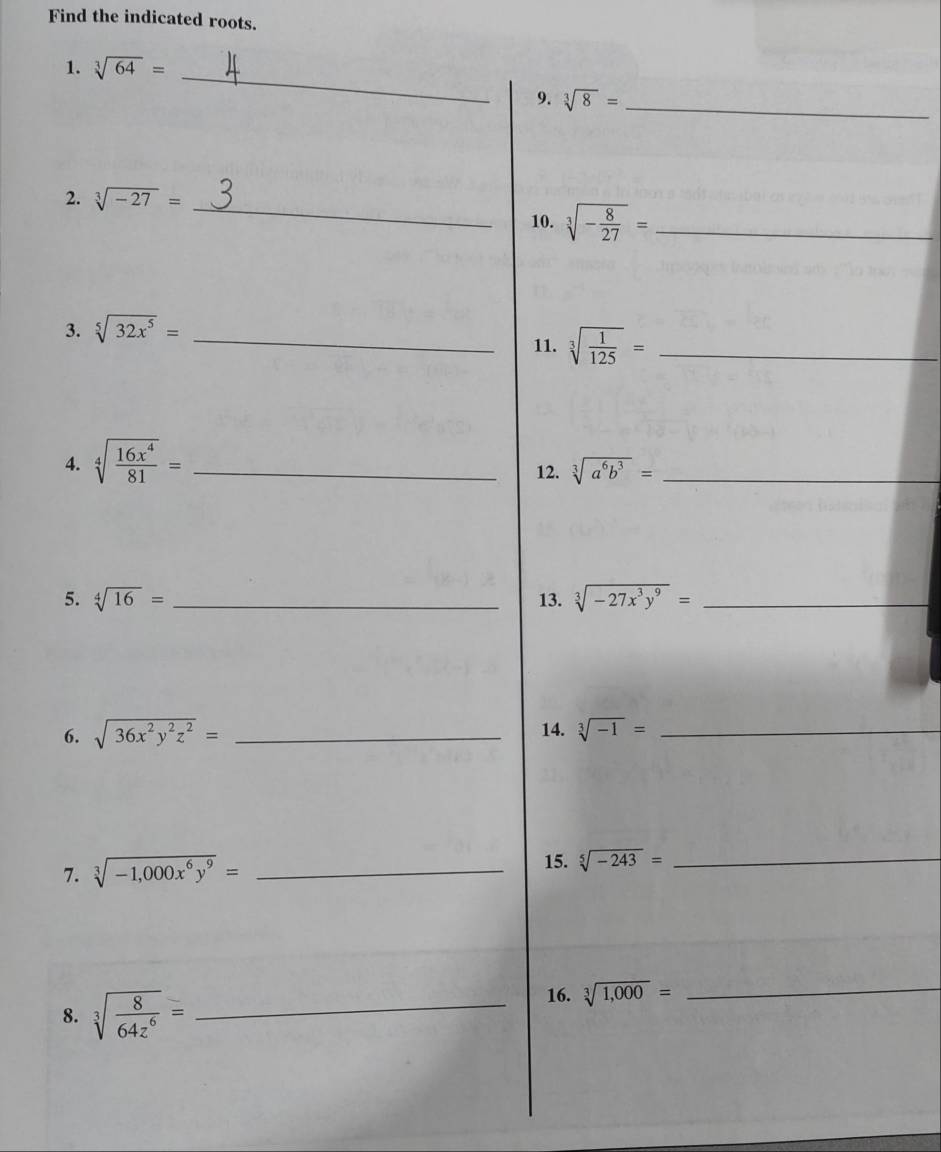 Find the indicated roots.
1. ∛64 = 4
2. ∛-27 = 3
3. ⁵√32x⁵ =
4. ⁴√16x⁴/81 =
5. ⁴√16 =
6. √36x²y²z² =
7. ∛-1,000x⁶y⁹ =
8. ∛8/64z⁶ =
9. ∛8 =
10. ∛-8/27 =
11. ∛1/125 =
12. ∛a⁶b³ =
13. ∛-27x³y⁹ =
14. ∛-1 =
15. ⁵√-243 =
16. ∛1,000 =